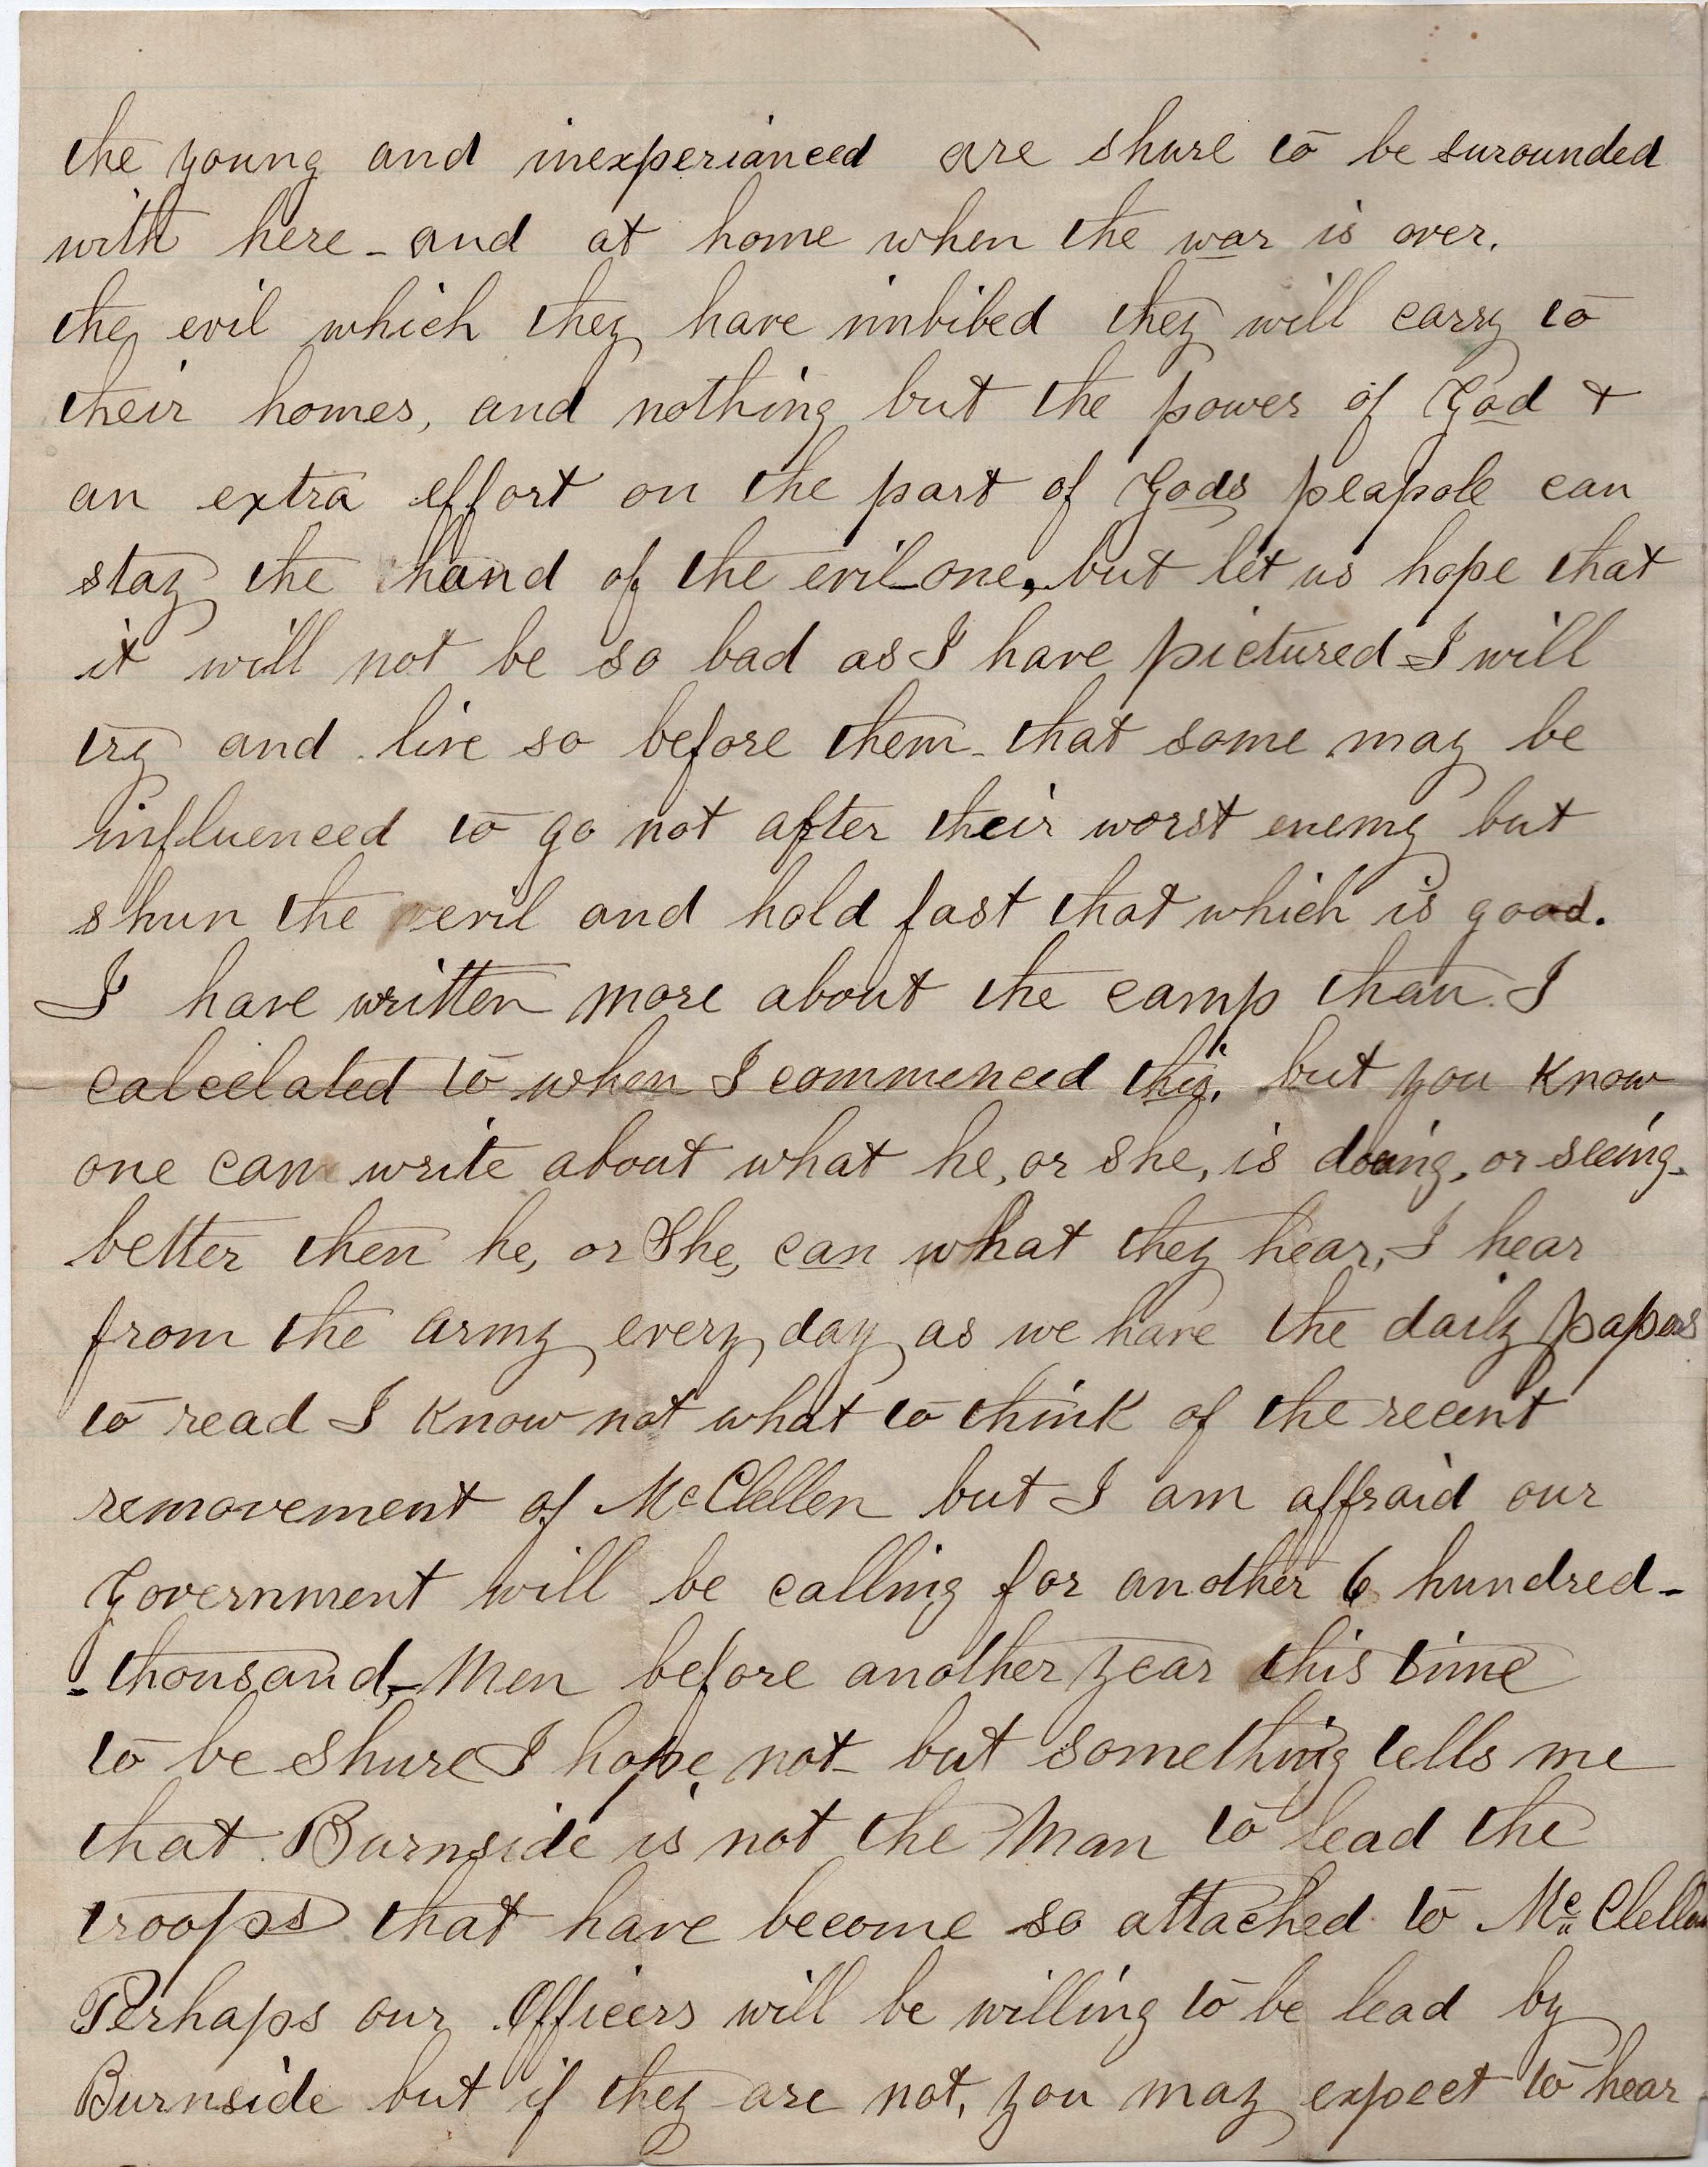 the young and inexperianced are shure to be surounded
with here - and at home when the war is over.
the evil which they have imbibed they will carry to
their homes, and nothing but the power of God &
an extra effort on the part of Gods peapole can
stay the hand of the evil one, but let us hope that
it will not be so bad as I have pictured I will
try and live so before them - that some may be
influenced to go not after their worst enemy but
shun the evil and hold fast that which is good.
I have written more about the camp than I
calcelated to when I commenced this, but you know
one can write about what he, or she, is doing, or seeing -
better then he, or She, can what they hear, I hear
from the army every day as we have the daily papers
to read I know not what to think of the recent
removement of McClellen but I am affraid our
Government will be calling for another 6 hundred -
- thousand, - Men before another year this time
to be shure I hope not - but something tells me
that Burnside is not the Man to lead the
troops that have become so attached to McClellan
Perhaps our Officers will be willing to be lead by
Burnside but if they are not, you may expect to hear